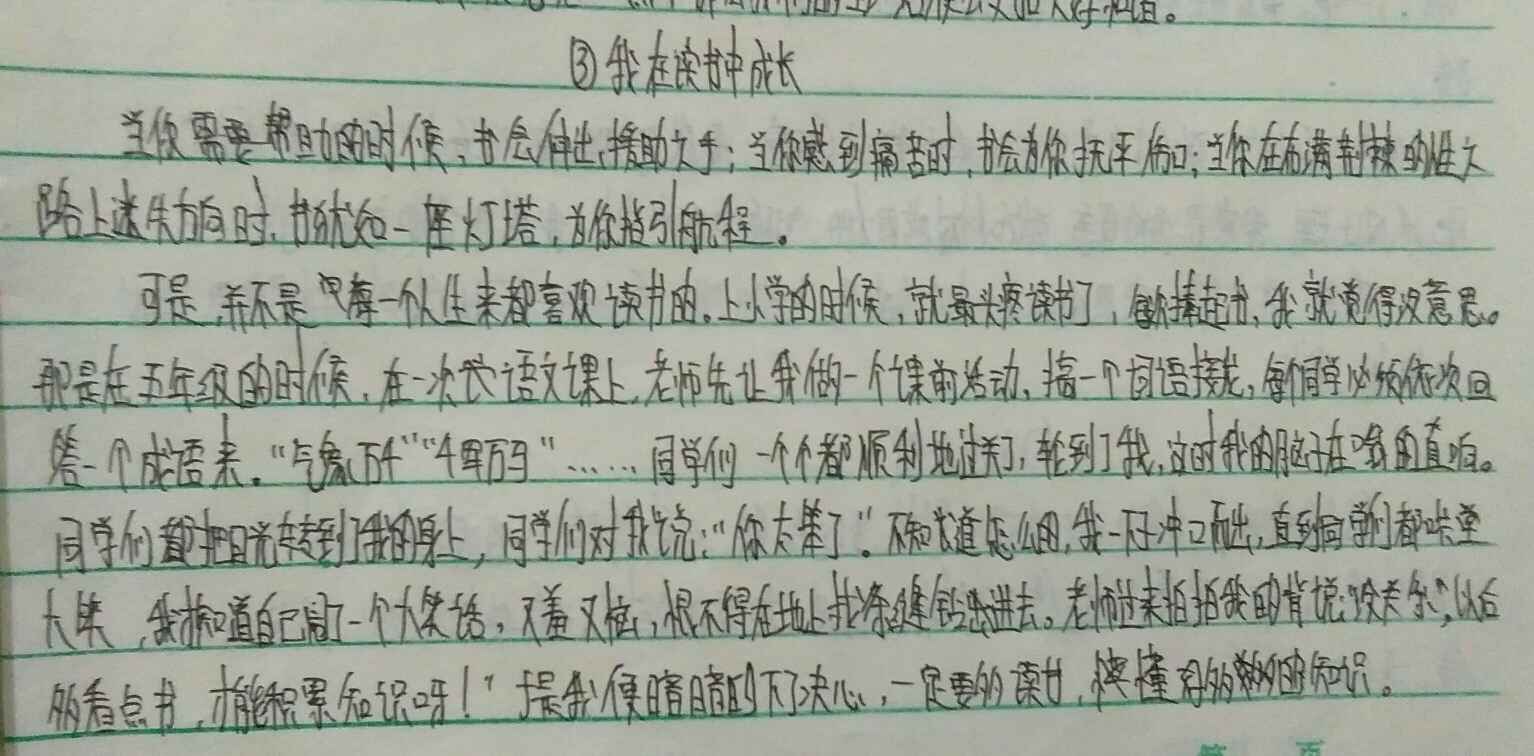 ③我在读书中成长
当你需要帮助的时候，书会伸出援助之手；当你感到痛苦时，书会为你抚平伤口；当你在布满荆棘的人
路上迷失方向时，书犹如一座灯塔，为你指引航程。
可是，并不是每一个人生来都喜欢读书的。上小学的时候，就最头疼读书了，每次捧起书，我就觉得没意思。
那是在五年级的时候，在一次语文课上，老师先让我做一个课前活动，搞一个词语接龙，每个同学必须依次回
答一个成语来。“气象万千”“千军万马”……同学们一个个都顺利地过关了，轮到了我，这时我的脑子在嗡的直响。
同学们都把目光转到了我的身上，同学们对我说：“你太笨了”。不知道怎么的，我一下冲口而出，直到同学们都哄堂
大笑，我才知道自己闹了一个大笑话，又羞又恼，恨不得在地上找条缝钻进去。老师过来拍拍我的背说：没关系，以后
多看点书，才能积累知识呀！”于是我便暗暗的下了决心，一定要多读书，懂得的知识。